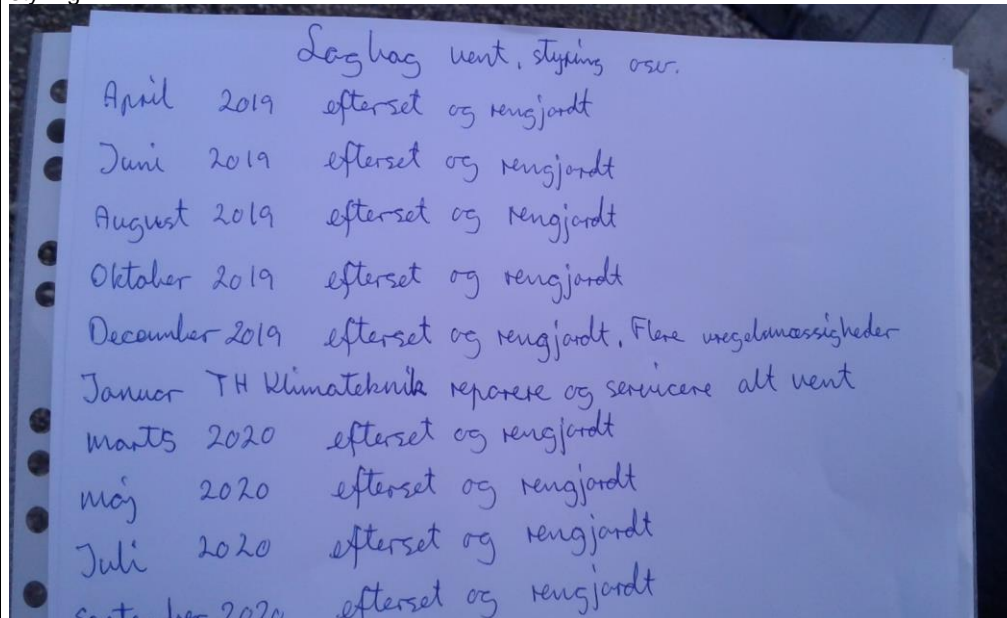 Logbog vent. styring osv.
April 2019 efterset og rengjordt
Juni 2019 efterset og rengjordt
August 2019 efterset og rengjordt
Oktober 2019 efterset og rengjordt
December 2019 efterset og rengjordt. Flere uregelmæssigheder
Januar TH Klimateknik reparere og servicere alt vent
marts 2020 efterset og rengjordt
maj 2020 efterset og rengjordt
Juli 2020 efterset og rengjordt
September 2020 efterset og rengjordt